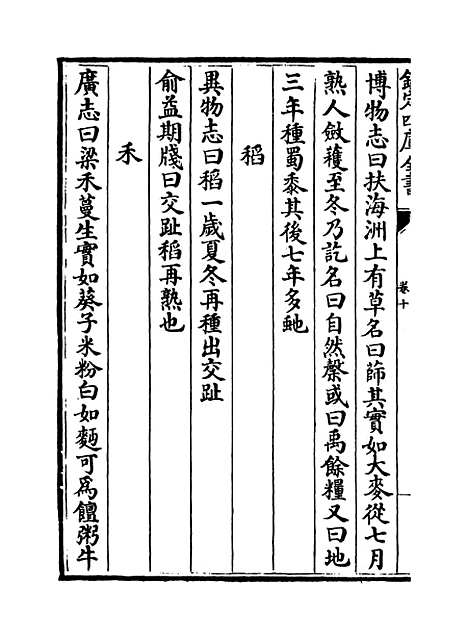 欽定四庫全書
卷十
博物志曰扶海洲上有草名曰蒒其實如大麥從七月
熟人斂穫至冬乃訖名曰自然榖或曰禹餘糧又曰地
三年種蜀黍其後七年多虵
稻
異物志曰稻一歲夏冬再種出交趾
俞益期牋曰交趾稻再熟也
禾
廣志曰梁禾蔓生實如葵子米粉白如麵可為饘粥牛